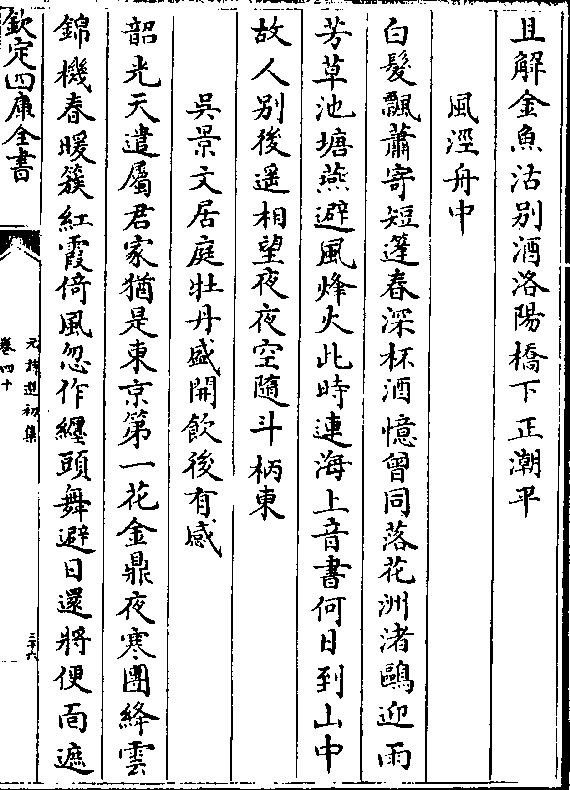 且解金魚沽别酒洛陽橋下正潮平
風涇舟中
白髮飄蕭寄短蓬春深杯酒憶曾同落花洲渚鷗迎雨
芳草池塘燕避風烽火此時連海上音書何日到山中
故人别後遥相望夜夜空隨斗柄東
吳景文居庭牡丹盛開飲後有感
韶光天遣屬君家猶是東京第一花金鼎夜寒團絳雲
錦機春暖簇紅霞倚風忽作纒頭舞避日還將便面遮
欽定四庫全書
元詩選初集
卷四十
三十六